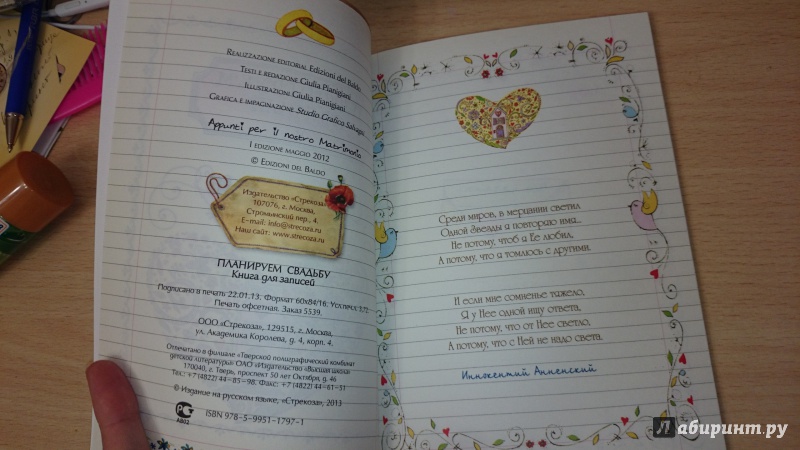 Realizzazione editorial Edizioni del Baldo
Testi e redazione Giulia Pianigiani
Illustrazioni Giulia Pianigiani
Grafica e impaginazione Studio Grafico Salvagno
Appunti per il nostro Matrimonio
I edizione maggio 2012
© Edizioni del Baldo
Издательство «Стрекоза»
107076, г. Москва,
Стромынский пер., 4.
E-mail: info@strecoza.ru
Наш сайт: www.strecoza.ru
ПЛАНИРУЕМ СВАДЬБУ
Книга для записей
Подписано в печать 22.01.13. Формат 60х84/16. Усл.печ.л. 3,72.
Печать офсетная. Заказ 5539.
ООО «Стрекоза», 129515, г. Москва,
ул. Академика Королева, д. 4, корп. 4.
Отпечатано в филиале «Тверской полиграфический комбинат
детской литературы» ОАО «Издательство «Высшая школа»
170040, г. Тверь, проспект 50 лет Октября, д. 46
Тел.: +7(4822) 44-85-98. Факс: +7(4822) 44-61-51
© Издание на русском языке, «Стрекоза», 2013
АВ02
ISBN 978-5-9951-1797-1
Среди миров, в мерцании светил
Одной Звезды я повторяю имя...
Не потому, чтоб я Ее любил,
А потому, что я томлюсь с другими.
И если мне сомненье тяжело,
Я у Нее одной ищу ответа,
Не потому, что от Нее светло,
А потому, что с Ней не надо света.
Иннокентий Анненский
Лабиринт.ру